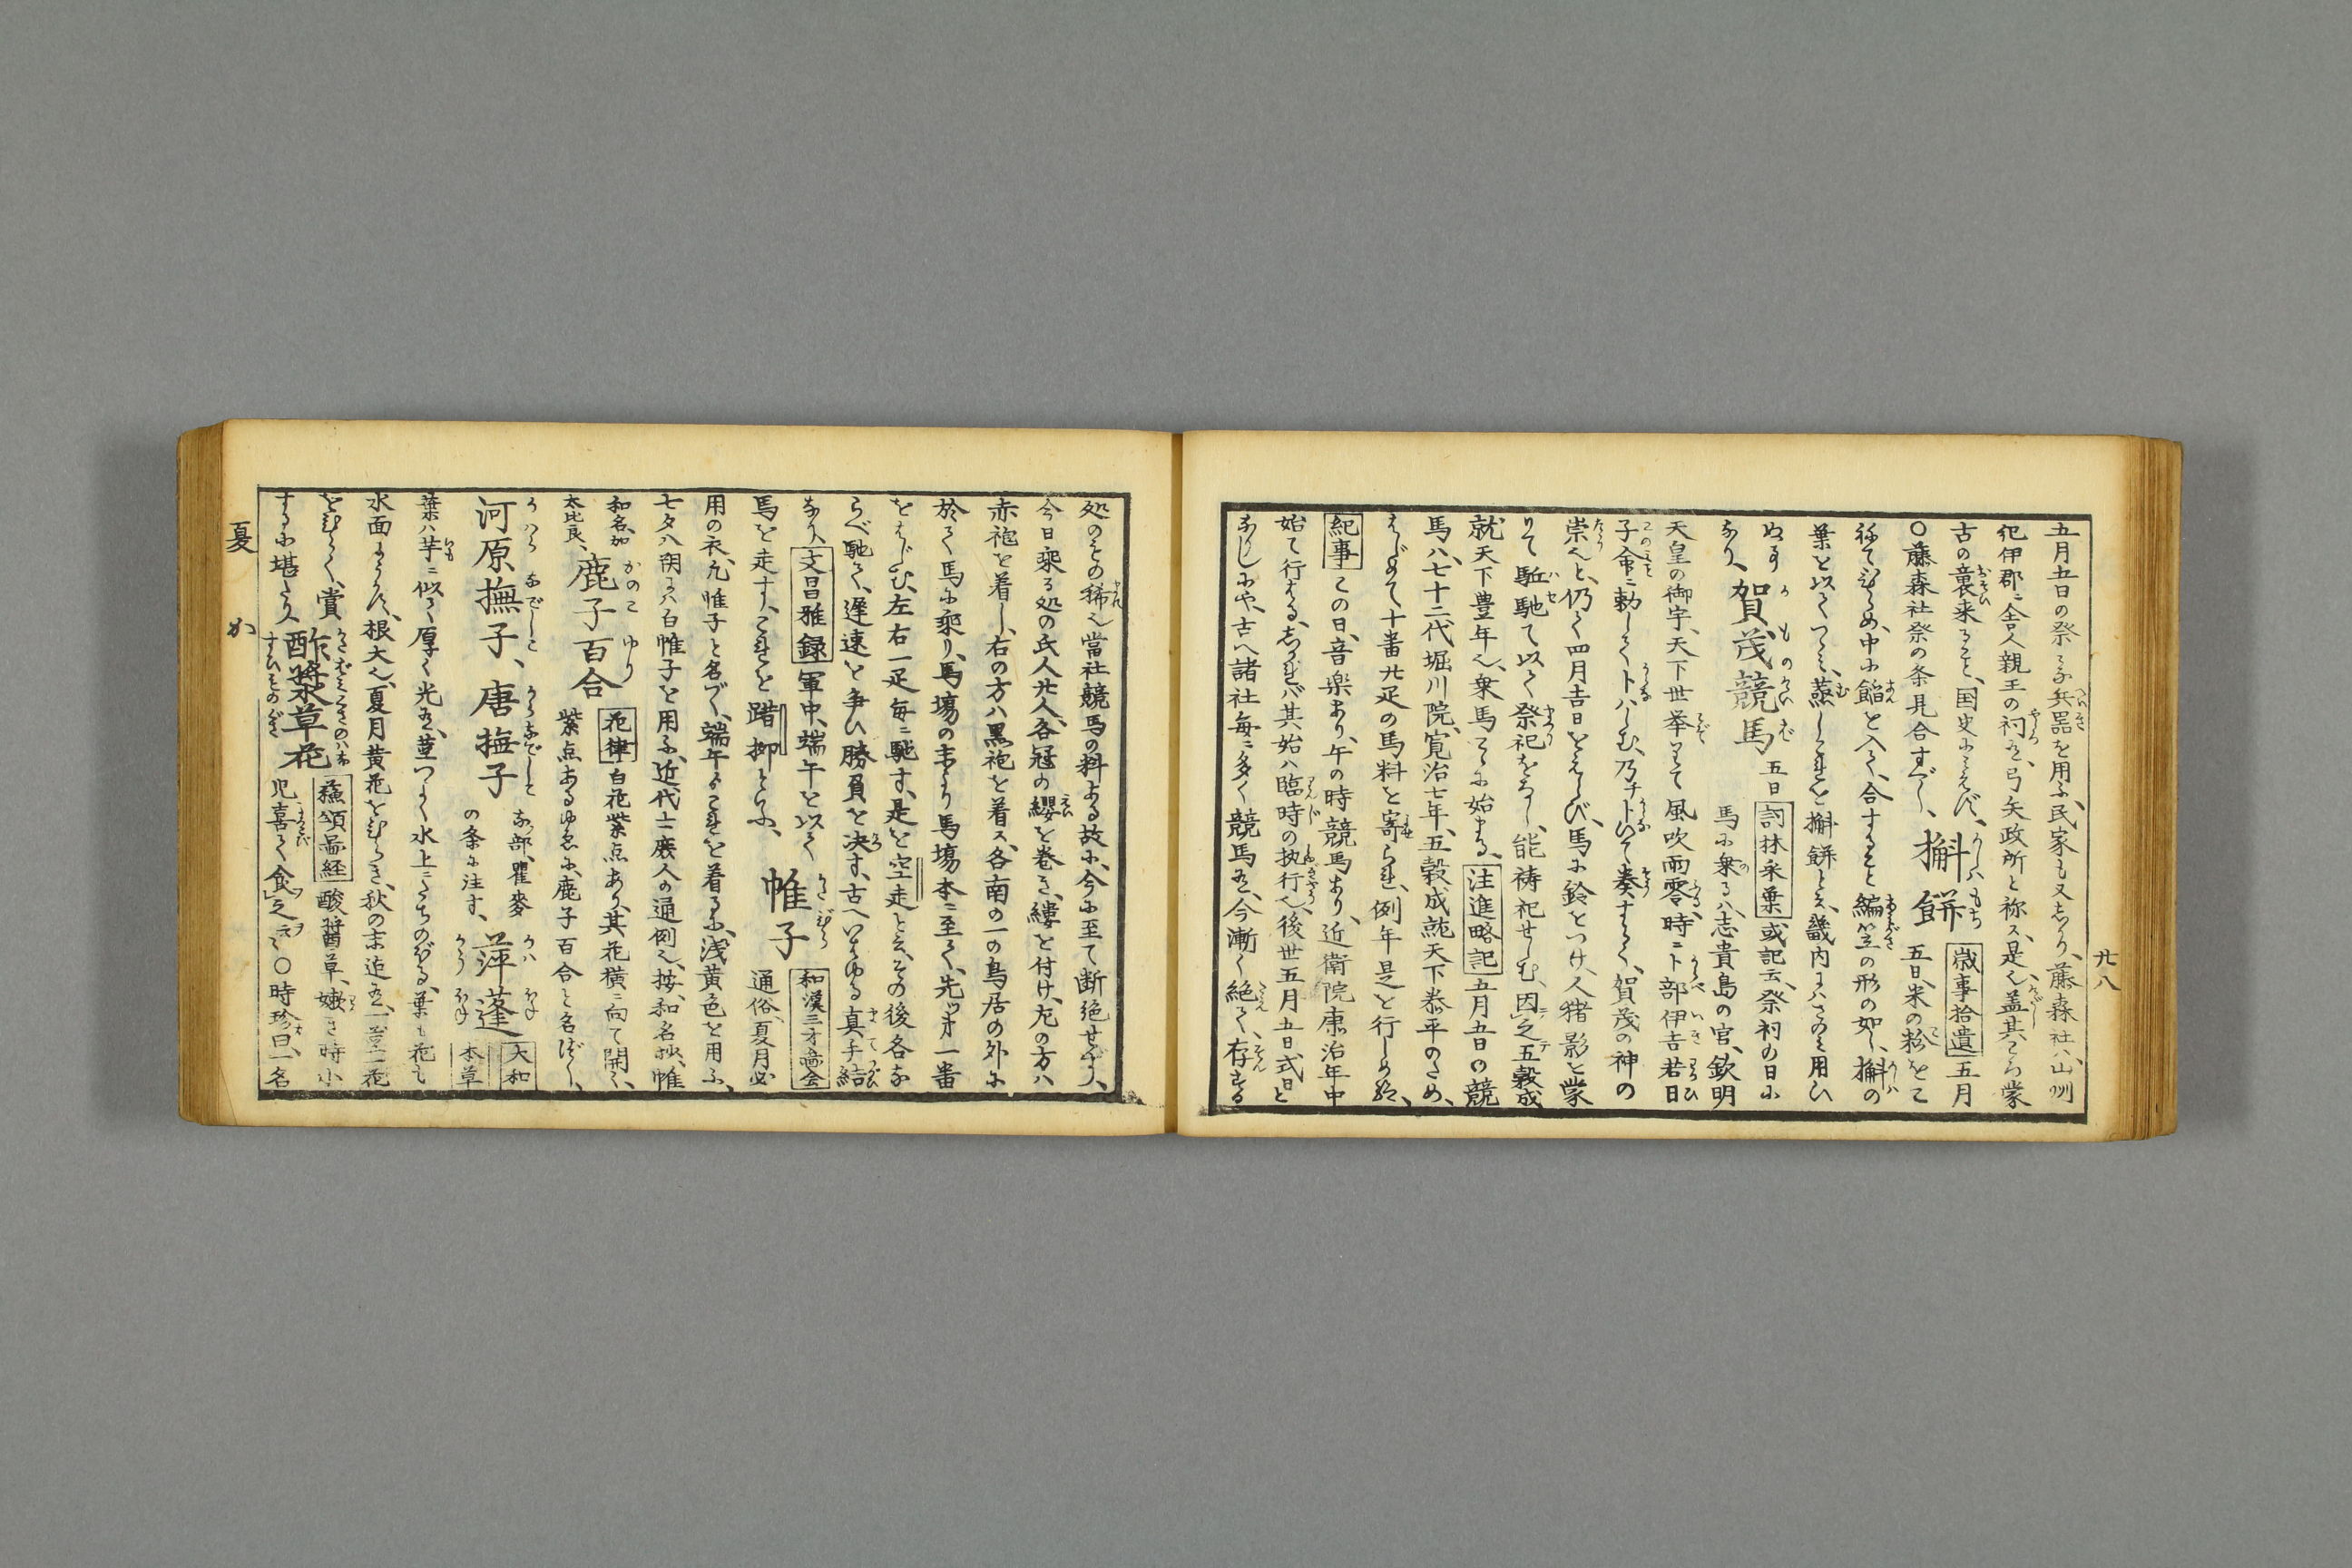 廿八
五月五日の祭る兵器を用ふ、民家も又しかり、藤森社ハ、山州
紀伊郡ニ舎人親王の祠を、弓矢政所と称ス、是也、蓋其ころ蒙
古の襲来ること、国史に見えず、槲餅 歳事拾遺 五月
〇藤森社祭の条見合すべし、五日米の粉をこ
ねてひらめ、中に餡を入て、合すること編笠の形の如し、槲の
葉を以てつゝミ、蒸してこれを槲餅と云、畿内にハさのミ用ひ
ぬ事
なり、賀茂競馬 五日 詞林采葉 或記云、祭祠の日に
馬に乗るハ、志貴島の官、欽明
天皇の御宇、天下世挙りて風吹雨零、時ニ卜部伊吉若日
子命ニ勅して卜ハしむ、乃チ卜ひて奏すらく、賀茂の神の
崇也と、仍て四月吉日をえらび、馬に鈴をつけ、人猪影を蒙
りて駈馳て以て祭祀をなし、能祷祀せしむ、因之五穀成
就、天下豊年也、乗馬こゝに始まる、注進略記 五月五日の競
馬ハ、七十二代堀川院、寛治七年、五穀成就天下泰平のため、
はじめて、十番廿疋の馬料を寄られ、例年是を行しめ給、
紀事 この日、音楽あり、午の時競馬あり、近衛院康治年中
始て行はる、しかれバ其始ハ臨時の執行也、後世五月五日式日と
なりしにや、古ヘ諸社毎ニ多く競馬を、今漸く絶て、存する
処のもの稀也、當社競馬の料ある故に、今に至て断絶せざり、
今日乗る処の氏人廿人、各冠の纓を巻き、縷を付け、左の方ハ
赤袍を着し、右の方ハ黒袍を着ス、各南の一の鳥居の外に
於て馬に乗り、馬場の末より馬場本ニ至て、先ッ才一番
をはじむ、左右一疋毎ニ馳す、是を空走と云、その後各な
らべ馳て、遅速を争ひ勝負を決す、古ヘいはゆる真手結
なり、文昌雅録 軍中、端午を以て
馬を走す、これを踏柳といふ、帷子 和漢三才啚会
通俗、夏月必
用の衣、凡帷子と名づく、端午よりこれを着るに、浅黄色を用ふ、
七夕八朔にハ白帷子を用ふ、近代士庶人の通例也、按、和名抄、帷
和名加
太比良、鹿子百合 花律 白花紫点あり、其花横ニ向て開く、
紫点あるゆゑに、鹿子百合と名づく、
河原撫子、唐撫子 な部、瞿麥
の条に注す、萍蓬 大和
本草
葉ハ芋ニ似て厚く光る、莖つよく水上ニたちのびる、葉も花も
水面にうかぶ、根大也、夏月黄花をひらき、秋の末迄、一莖一花
をひらく、賞
するに堪たり、酢漿草花 蘓頌圖経 酸醤草、嫩き時小
児喜て食之云々 〇時珍曰一名
夏 か